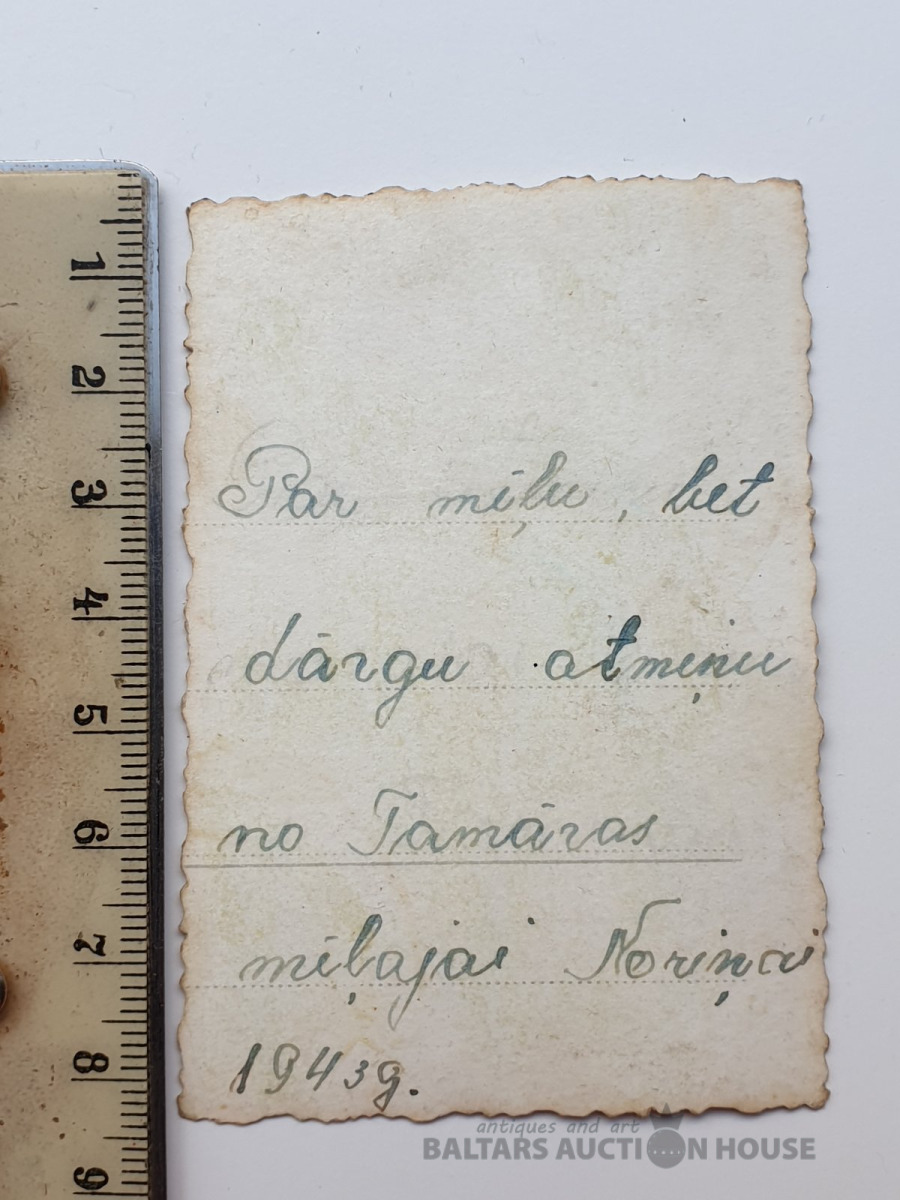 Par mīļu, bet
dārgu atmiņu
no Tamāras
mīļajai Noriņai
1943g.
1
2
3
4
5
6
7
8
9
antiques and art
BALTARS AUCTION HOUSE